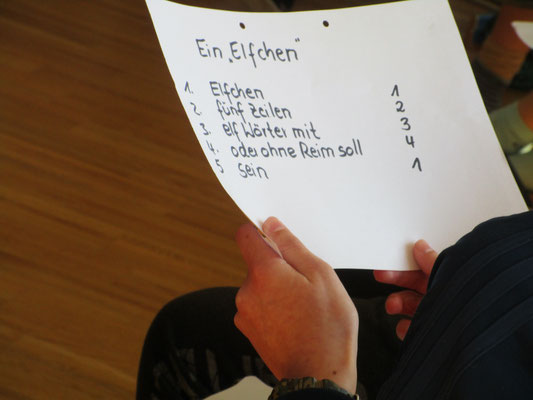 Ein „Elfchen“
1. Elfchen 1
2. fünf Zeilen 2
3. elf Wörter mit 3
4. oder ohne Reim soll 4
5 sein 1